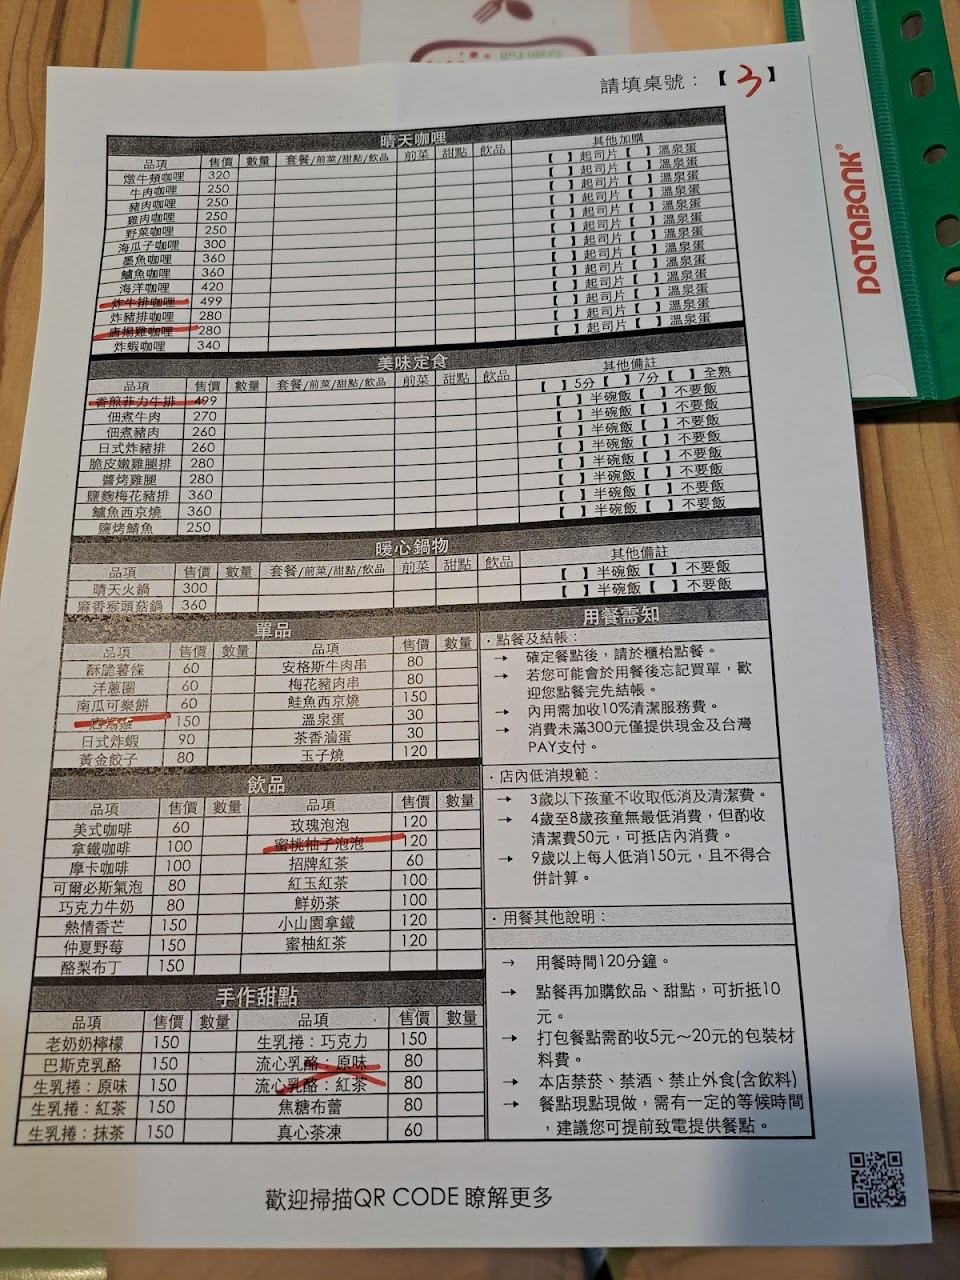 請填桌號：【3】
DATABANK®
晴天咖哩
品項 售價 數量 套餐/前菜/甜點/飲品 前菜 甜點 飲品 其他加購
燉牛頰咖哩 320 【 】起司片【 】溫泉蛋
牛肉咖哩 250 【 】起司片【 】溫泉蛋
豬肉咖哩 250 【 】起司片【 】溫泉蛋
雞肉咖哩 250 【 】起司片【 】溫泉蛋
野菜咖哩 230 【 】起司片【 】溫泉蛋
海瓜子咖哩 300 【 】起司片【 】溫泉蛋
墨魚咖哩 360 【 】起司片【 】溫泉蛋
鱸魚咖哩 360 【 】起司片【 】溫泉蛋
海洋咖哩 420 【 】起司片【 】溫泉蛋
炸牛排咖哩 499 【 】起司片【 】溫泉蛋
炸豬排咖哩 280 【 】起司片【 】溫泉蛋
唐揚雞咖哩 280 【 】起司片【 】溫泉蛋
炸蝦咖哩 340 【 】起司片【 】溫泉蛋
美味定食
品項 售價 數量 套餐/前菜/甜點/飲品 前菜 甜點 飲品 其他備註
香煎菲力牛排 499 【 】5分【 】7分【 】全熟
佃煮牛肉 270 【 】半碗飯【 】不要飯
佃煮豬肉 260 【 】半碗飯【 】不要飯
日式炸豬排 260 【 】半碗飯【 】不要飯
脆皮嫩雞腿排 280 【 】半碗飯【 】不要飯
醬烤雞腿 280 【 】半碗飯【 】不要飯
鹽麴梅花豬排 360 【 】半碗飯【 】不要飯
鱸魚西京燒 360 【 】半碗飯【 】不要飯
鹽烤鯖魚 250 【 】半碗飯【 】不要飯
暖心鍋物
品項 售價 數量 套餐/前菜/甜點/飲品 前菜 甜點 飲品 其他備註
晴天火鍋 300 【 】半碗飯【 】不要飯
麻香猴頭菇鍋 360 【 】半碗飯【 】不要飯
單品
品項 售價 數量 售價 數量
酥脆薯條 60 安格斯牛肉串 80
洋蔥圈 60 梅花豬肉串 80
南瓜可樂餅 60 鮭魚西京燒 150
唐揚雞 150 溫泉蛋 30
日式炸蝦 90 茶香滷蛋 30
黃金餃子 80 玉子燒 120
飲品
品項 售價 數量 品項 售價 數量
美式咖啡 60 玫瑰泡泡 120
拿鐵咖啡 100 蜜桃柚子泡泡 120
摩卡咖啡 100 招牌紅茶 60
可爾必斯氣泡 80 紅玉紅茶 100
巧克力牛奶 80 鮮奶茶 100
熱情香芒 150 小山園拿鐵 120
仲夏野莓 150 蜜柚紅茶 120
酪梨布丁 150
手作甜點
品項 售價 數量 品項 售價 數量
老奶奶檸檬 150 生乳捲：巧克力 150
巴斯克乳酪 150 流心乳酪：原味 80
生乳捲：原味 150 流心乳酪：紅茶 80
生乳捲：紅茶 150 焦糖布蕾 80
生乳捲：抹茶 150 真心茶凍 60
用餐需知
· 點餐及結帳：
→ 確定餐點後，請於櫃枱點餐。
→ 若您可能會於用餐後忘記買單，歡
迎您點餐完先結帳。
→ 內用需加收10%清潔服務費。
→ 消費未滿300元僅提供現金及台灣
PAY支付。
· 店內低消規範：
→ 3歲以下孩童不收取低消及清潔費。
→ 4歲至8歲孩童無最低消費，但酌收
清潔費50元，可抵店內消費。
→ 9歲以上每人低消150元，且不得合
併計算。
· 用餐其他說明：
→ 用餐時間120分鐘。
→ 點餐再加購飲品、甜點，可折抵10
元。
→ 打包餐點需酌收5元～20元的包裝材
料費。
→ 本店禁菸、禁酒、禁止外食(含飲料)
→ 餐點現點現做，需有一定的等候時間
，建議您可提前致電提供餐點。
歡迎掃描QR CODE 瞭解更多